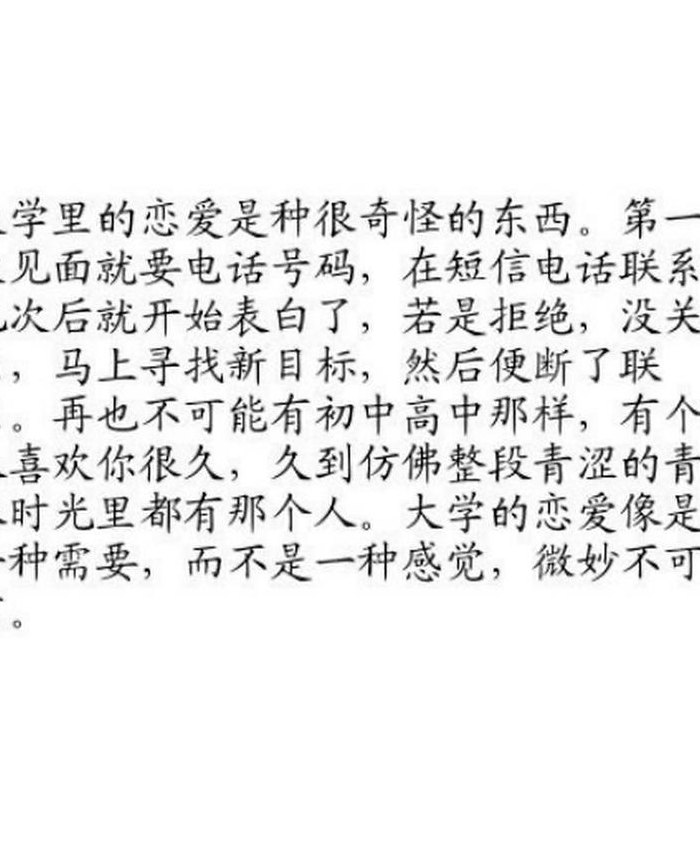 学里的恋爱是种很奇怪的东西。第一
见面就要电话号码，在短信电话联系
次后就开始表白了，若是拒绝，没关
，马上寻找新目标，然后便断了联
。再也不可能有初中高中那样，有个
喜欢你很久，久到仿佛整段青涩的青
时光里都有那个人。大学的恋爱像是
种需要，而不是一种感觉，微妙不可
。